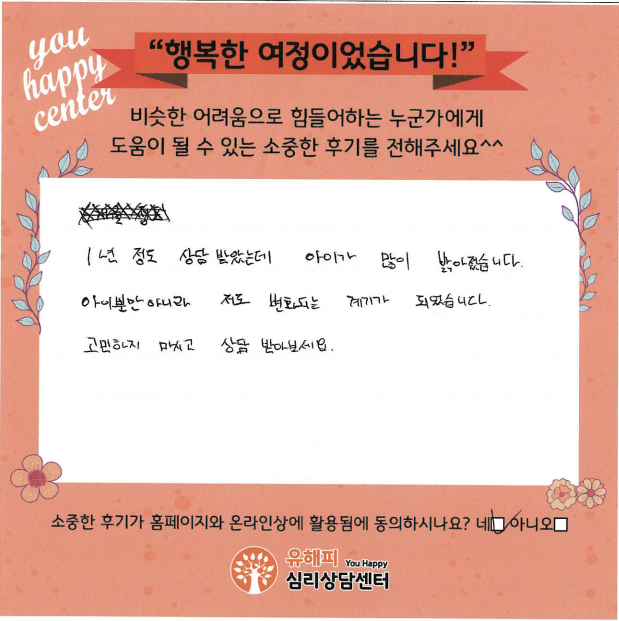 you
happy
center
“행복한 여정이었습니다!”
비슷한 어려움으로 힘들어하는 누군가에게
도움이 될 수 있는 소중한 후기를 전해주세요^^
1년 정도 상담 받았는데 아이가 많이 밝아졌습니다.
아이뿐만 아니라 저도 변화되는 계기가 되었습니다.
고민하지 마시고 상담 받아보세요.
소중한 후기가 홈페이지와 온라인상에 활용됨에 동의하시나요? 네 아니오
유해피 You Happy
심리상담센터